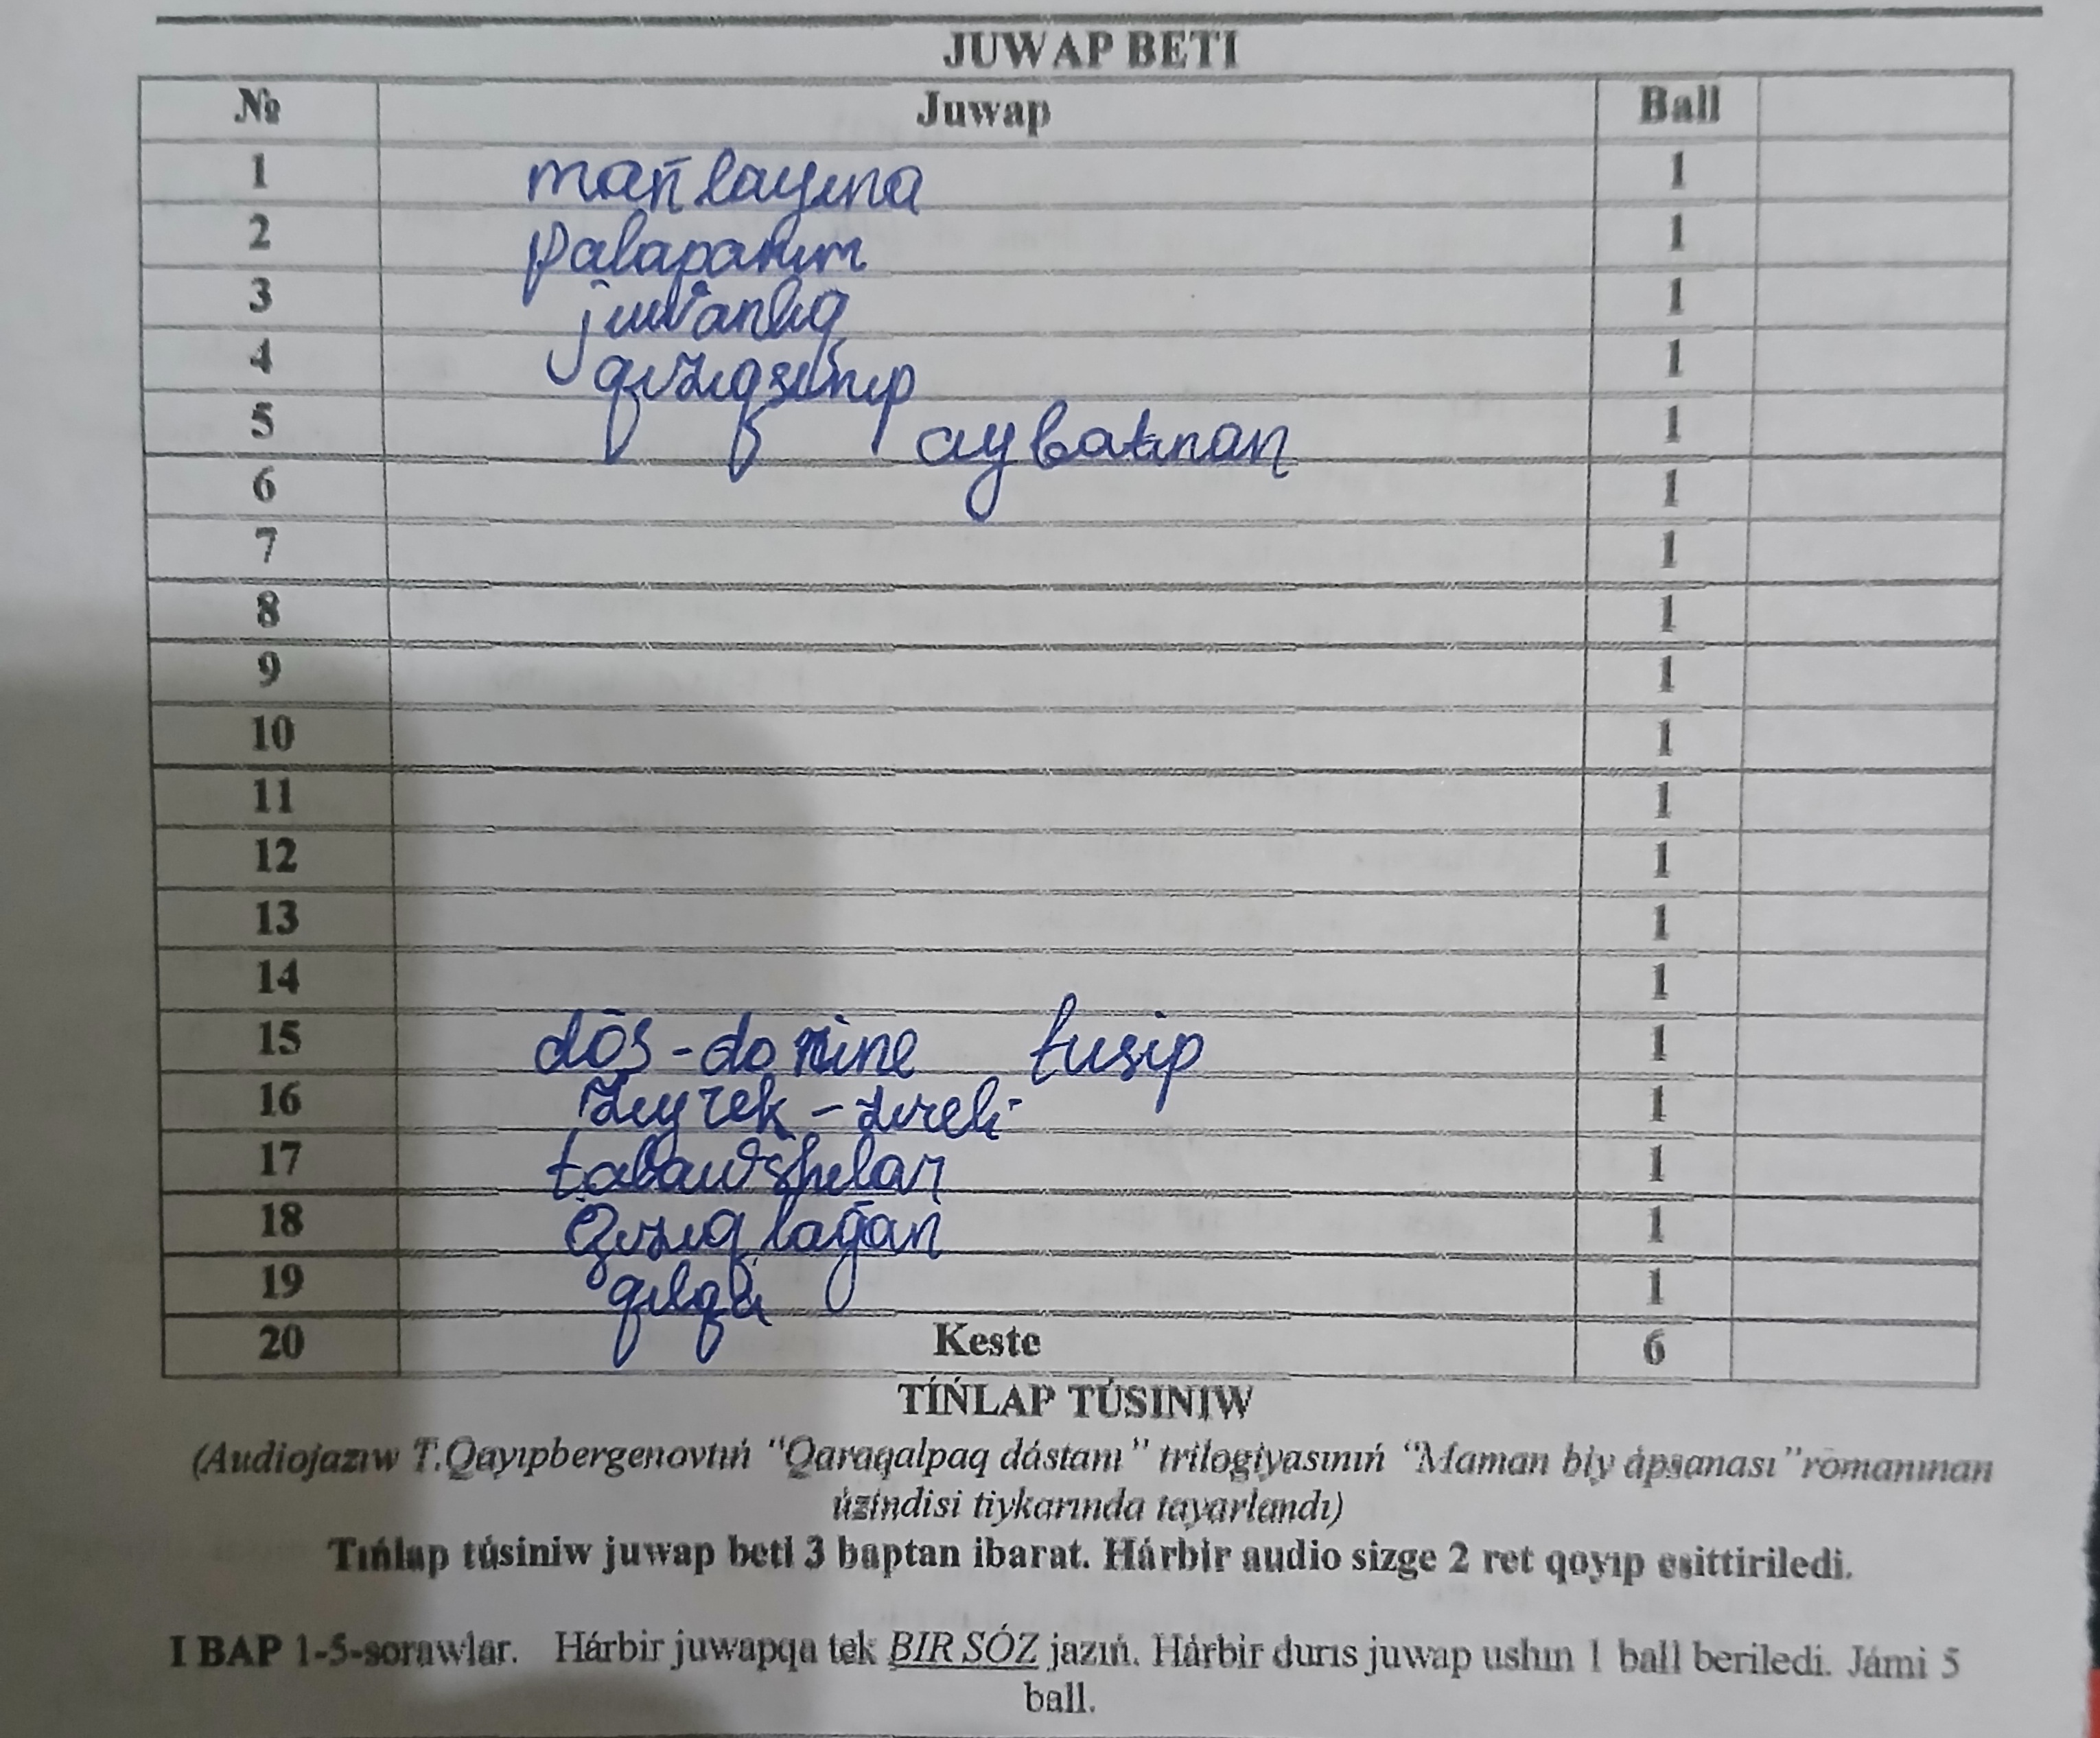 JUWAP BETI
№ Juwap Ball
1 mańlayına 1
2 palapanım 1
3 juwanlıq 1
4 qızıqsınıp 1
5 aybatınan 1
6 1
7 1
8 1
9 1
10 1
11 1
12 1
13 1
14 1
15 dós-donine tusip 1
16 1
17 tabawshılar 1
18 Qızıqlaǵan 1
19 1
20 Keste 6
TÍŃLAP TÚSINIW
(Audiojazıw T.Qayıpbergenovtıń "Qaraqalpaq dástanı" trilogiyasınıń "Maman biy ápsanası" romanınan
úzindisi tiykarında tayarlandı)
Tıńlap túsiniw juwap beti 3 baptan ibarat. Hárbir audio sizge 2 ret qoyıp esittiriledi.
I BAP 1-5-sorawlar. Hárbir juwapqa tek BIR SÓZ jazıń. Hárbir durıs juwap ushın 1 ball beriledi. Jámi 5
ball.